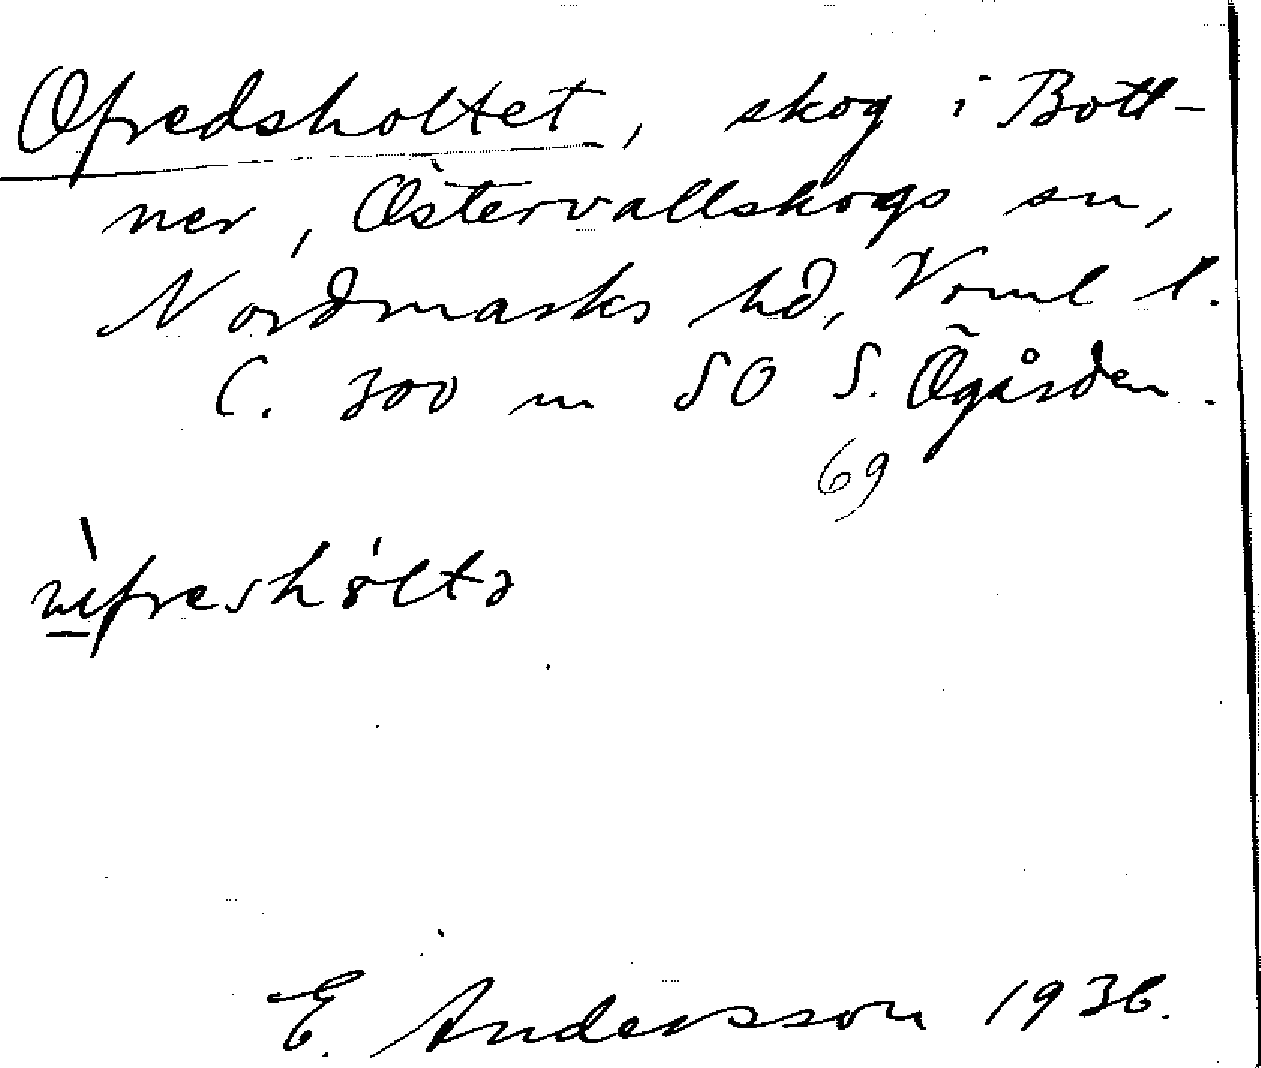 Ofredsholtet, skog i Bott-
ner, Östervallskogs sn,
Nordmarks hd, Verml l.
C. 300 m SO S. Ögården.
69
E. Andersson 1936.